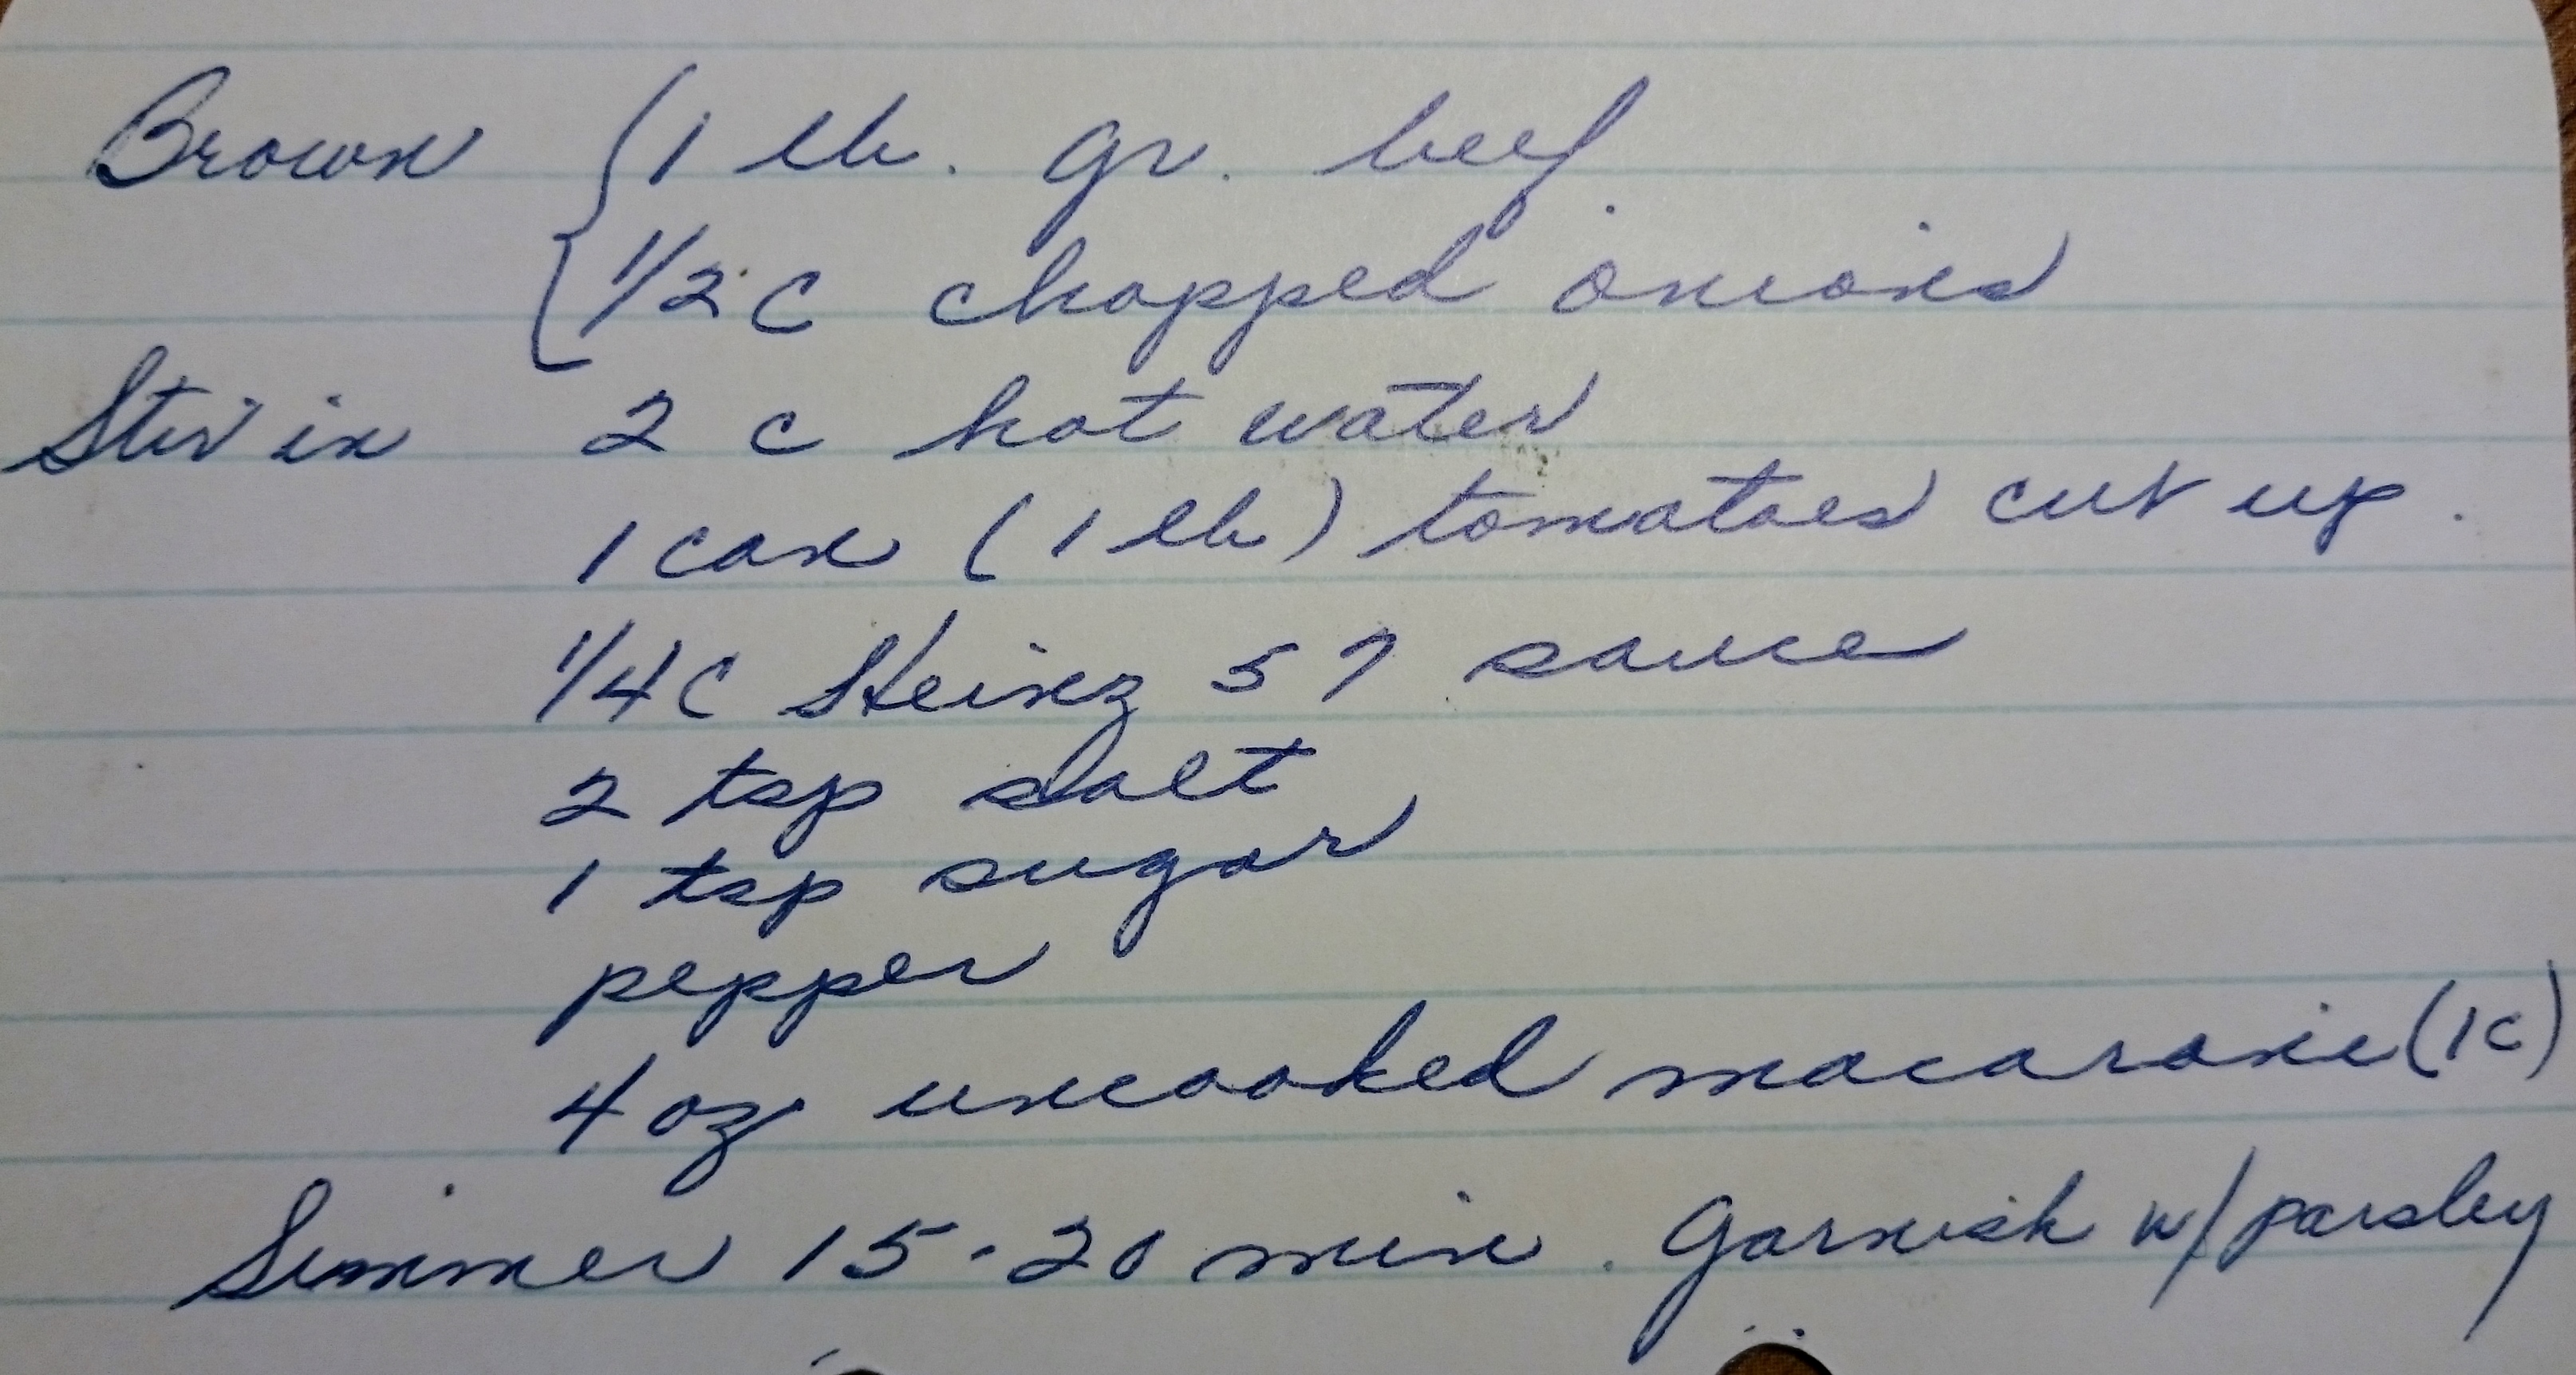 Brown { 1 lb. gr. beef
1/2 c chopped onions
Stir in 2 c hot water
1 can (1 lb) tomatoes cut up.
1/4 c Heinz 57 sauce
2 tsp salt
1 tsp sugar
pepper
4 oz uncooked macaroni (1c)
Simmer 15-20 min. Garnish w/ parsley